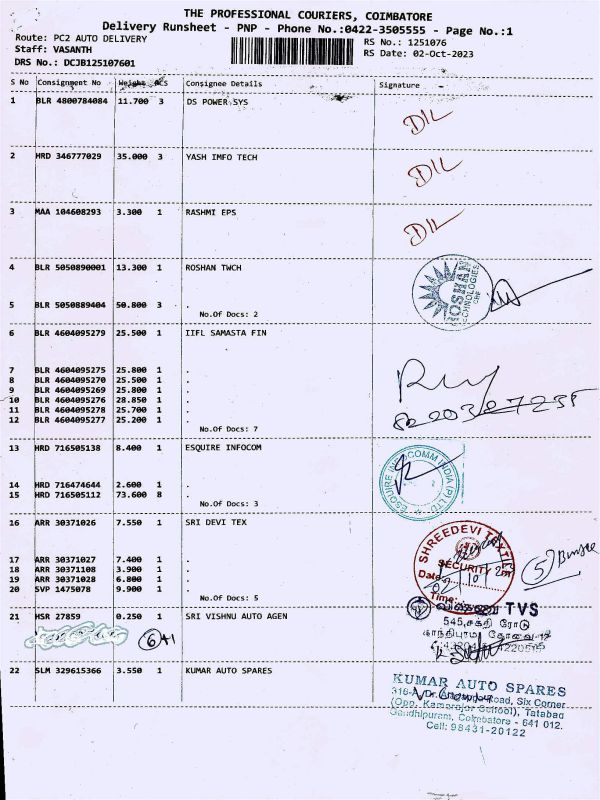 THE PROFESSIONAL COURIERS, COIMBATORE
Delivery Runsheet - PNP - Phone No.:0422-3505555 - Page No.:1
Route: PC2 AUTO DELIVERY
RS No.: 1251076
Staff: VASANTH
RS Date: 02-Oct-2023
DRS No.: DCJB125107601
S No Consignment No Weight PCS Consignee Details Signature
1 BLR 4800784084 11.700 3 DS POWER SYS
DIL
2 HRD 346777029 35.000 3 YASH IMFO TECH
DIL
3 MAA 104608293 3.300 1 RASHMI EPS
DIL
4 BLR 5050890001 13.300 1 ROSHAN TWCH
ROSHAN TECHNOLOGIES
5 BLR 5050889404 50.800 3 .
No.Of Docs: 2
6 BLR 4604095279 25.500 1 IIFL SAMASTA FIN
7 BLR 4604095275 25.800 1 .
8 BLR 4604095270 25.500 1 .
9 BLR 4604095269 25.800 1 .
10 BLR 4604095276 28.850 1 .
11 BLR 4604095278 25.700 1 .
12 BLR 4604095277 25.200 1 .
No.Of Docs: 7
13 HRD 716505138 8.400 1 ESQUIRE INFOCOM
ESQUIRE INFOCOMM INDIA (P) LTD
14 HRD 716474644 2.600 1 .
15 HRD 716505112 73.600 8 .
No.Of Docs: 3
16 ARR 30371026 7.550 1 SRI DEVI TEX
SHREEDEVI TEXTILE
SECURITY
Date:
Time:
17 ARR 30371027 7.400 1 .
18 ARR 30371108 3.900 1 .
19 ARR 30371028 6.800 1 .
20 SVP 1475078 9.900 1 .
No.Of Docs: 5
21 HSR 27859 0.250 1 SRI VISHNU AUTO AGEN
6 +1
TVS
545,சக்தி ரோடு
22 SLM 329615366 3.550 1 KUMAR AUTO SPARES
KUMAR AUTO SPARES
Road, Six Corner
(Opp. Kamarajar School), Tatabad
Gandhipuram, Coimbatore - 641 012.
Cell: 98431-20122